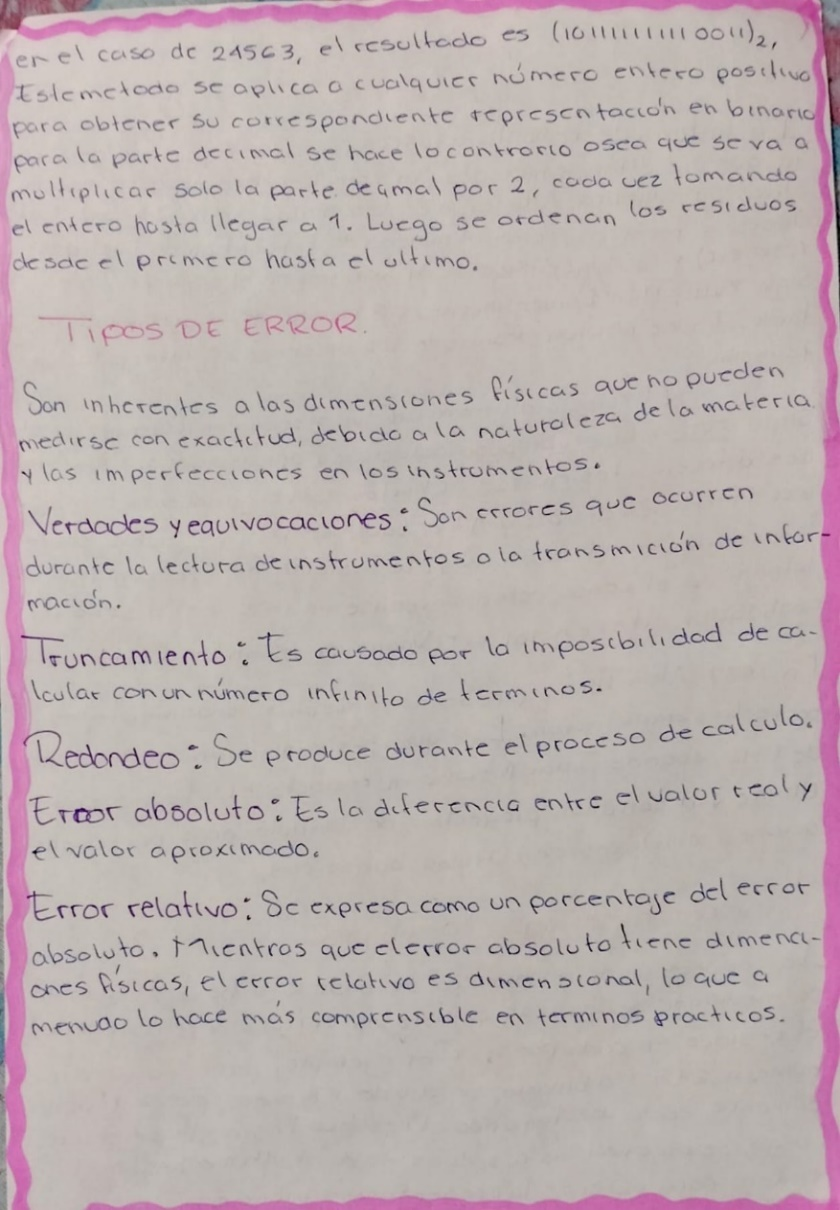 en el caso de 24563, el resultado es (101111111110011)₂,
Este metodo se aplica a cualquier número entero positivo
para obtener su correspondiente representación en binario
para la parte decimal se hace lo contrario osea que se va a
multiplicar solo la parte decimal por 2, cada vez tomando
el entero hasta llegar a 1. Luego se ordenan los residuos
desde el primero hasta el ultimo.
TIPOS DE ERROR.
Son inherentes a las dimensiones físicas que no pueden
medirse con exactitud, debido a la naturaleza de la materia
y las imperfecciones en los instrumentos.
Verdades y equivocaciones: Son errores que ocurren
durante la lectura de instrumentos o la transmición de infor-
mación.
Truncamiento: Es causado por la imposibilidad de ca-
lcular con un número infinito de terminos.
Redondeo: Se produce durante el proceso de calculo.
Error absoluto: Es la diferencia entre el valor real y
el valor aproximado.
Error relativo: Se expresa como un porcentaje del error
absoluto. Mientras que el error absoluto tiene dimenci-
ones físicas, el error relativo es dimensional, lo que a
menudo lo hace más comprensible en terminos practicos.